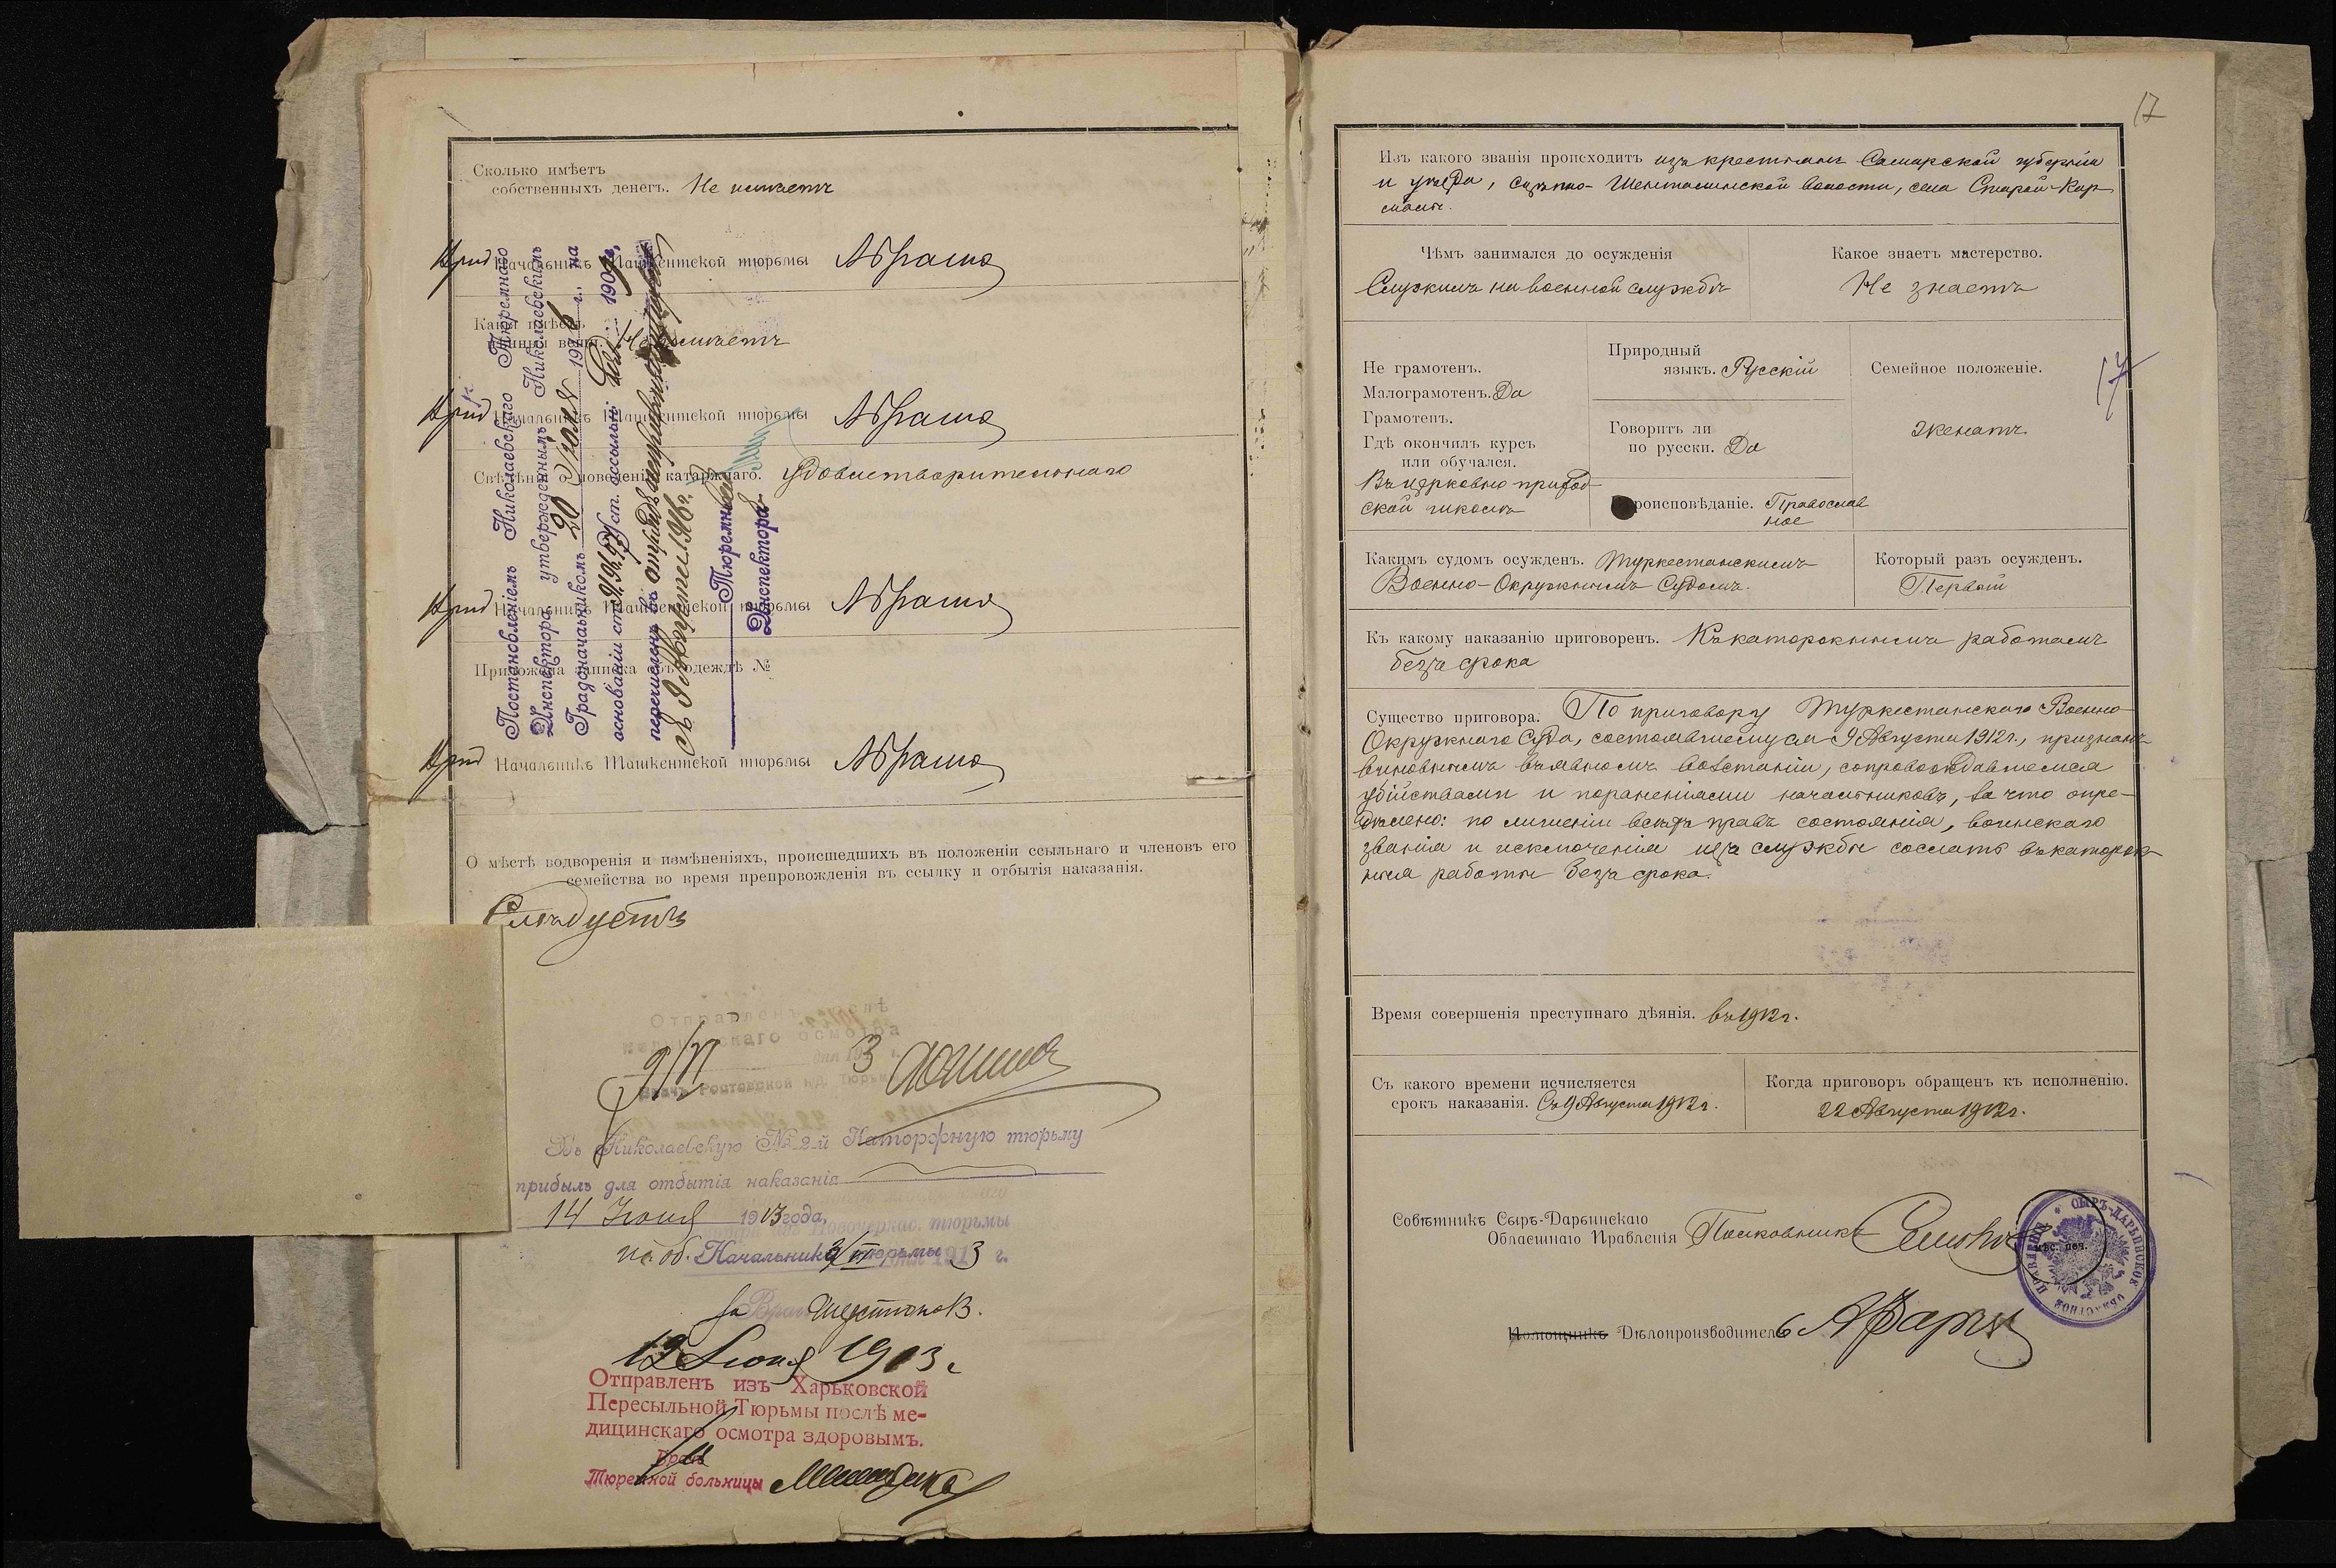 Сколько имѣетъ
собственныхъ денегъ. Не имѣетъ
Врид Начальникъ Ташкентской тюрьмы
Не имѣетъ
Врид Начальникъ Ташкентской тюрьмы
Свѣдѣнія о поведеніи катаржнаго. Удовлетворительнаго
Врид Начальникъ Ташкентской тюрьмы
Приложена записка объ одеждѣ №
Врид Начальникъ Ташкентской тюрьмы
Постановленіемъ Николаевскаго Тюремнаго
Инспектора, утвержденнымъ Николаевскимъ
Градоначальникомъ 20 Іюля 1916 г., на
основаніи ст. Уст. о ссыльн. 1909 г.,
перечисленъ въ отрядъ исправляющихся
съ 9 Августа 1916 г.
Тюремный
Инспекторъ
О мѣстѣ водворенія и измѣненіяхъ, происшедшихъ въ положеніи ссыльнаго и членовъ его
семейства во время препровожденія въ ссылку и отбытія наказанія.
Слѣдуетъ
Отправленъ послѣ
медицинскаго осмотра
Врачъ Ростовской н/Д. тюрьмы
Въ Николаевскую № 2-й Каторжную тюрьму
прибылъ для отбытія наказанія
14 Іюня 1913 года,
Новочеркас. тюрьмы
Начальникъ тюрьмы
12 Іюня 1913 г.
Отправленъ изъ Харьковской
Пересыльной Тюрьмы послѣ ме-
дицинскаго осмотра здоровымъ.
Врачъ
Тюремной больницы
17
Изъ какого званія происходитъ изъ крестьянъ Самарской губерніи
и уѣзда, Шенталинской волости, села Старой-Кар
мали.
Чѣмъ занимался до осужденія
Служилъ на военной службѣ
Какое знаетъ мастерство.
Не знаетъ
Не грамотенъ.
Малограмотенъ. Да
Грамотенъ.
Гдѣ окончилъ курсъ
или обучался.
Въ церковно приход-
ской школѣ
Природный
языкъ. Русскій
Говоритъ ли
по русски. Да
роисповѣданіе. Православ
ное
Семейное положеніе.
женатъ
17
Какимъ судомъ осужденъ. Туркестанскимъ
Военно-Окружнымъ Судомъ.
Который разъ осужденъ.
Первый
Къ какому наказанію приговоренъ. Къ каторожнымъ работамъ
безъ срока
Существо приговора. По приговору Туркестанскаго Военно-
Окружнаго Суда, состоявшемуся 9 Августа 1912 г., признанъ
виновнымъ въ явномъ возстаніи, сопровождавшемся
убійствами и пораненіями начальниковъ, за что опре-
дѣлено: по лишеніи всѣхъ правъ состоянія, воинскаго
званія и исключенія изъ службы сослать въ каторож-
ныя работы безъ срока.
Время совершенія преступнаго дѣянія. въ 1912 г.
Съ какого времени исчисляется
срокъ наказанія. Съ 9 Августа 1912 г.
Когда приговоръ обращенъ къ исполненію.
22 Августа 1912 г.
Совѣтникъ Сыръ-Дарьинскаго
Областнаго Правленія Полковникъ
СЫРЪ-ДАРЬИНСКОЕ ОБЛАСТНОЕ ПРАВЛЕНІЕ
мѣс. печ.
Помощникъ Дѣлопроизводитель